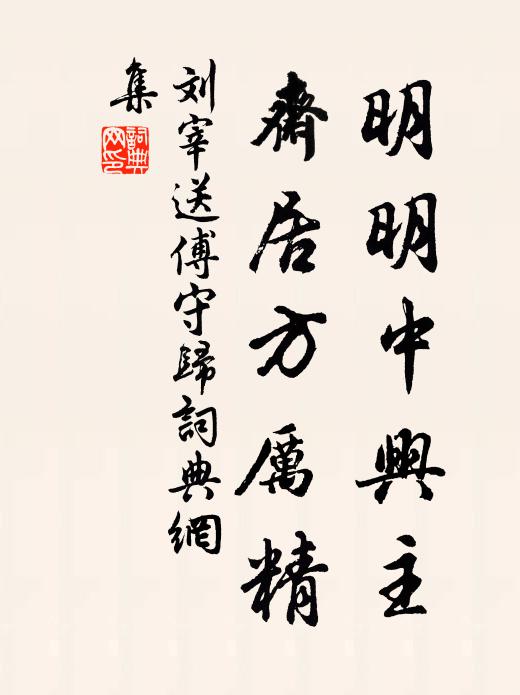 明明中興主
齋居方厲精
刘宰送傅守歸詞典網
集
詞典
网印